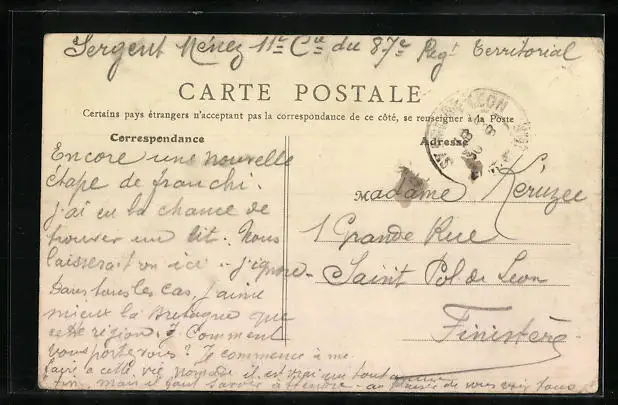 Sergent Ménez 11e Cie du 87e Regt Territorial
CARTE POSTALE
Certains pays étrangers n'acceptent pas la correspondance de ce côté, se renseigner à la Poste
Correspondance
Adresse
ST POL DE LEON
Encore une nouvelle
étape de franchi.
j'ai eu la chance de
trouver un lit. Nous
laisserait on ici - j'ignore -
Dans tous les cas, j'aime
mieux la Bretagne que
cette région. Comment
vous portez vous? Je commence à me
faire à cette vie nomade il est vrai que tout a une
fin, mais il faut savoir attendre - au plaisir de vous voir tous
Madame Kéruzec
1 Grande Rue
Saint Pol de Leon
Finistère